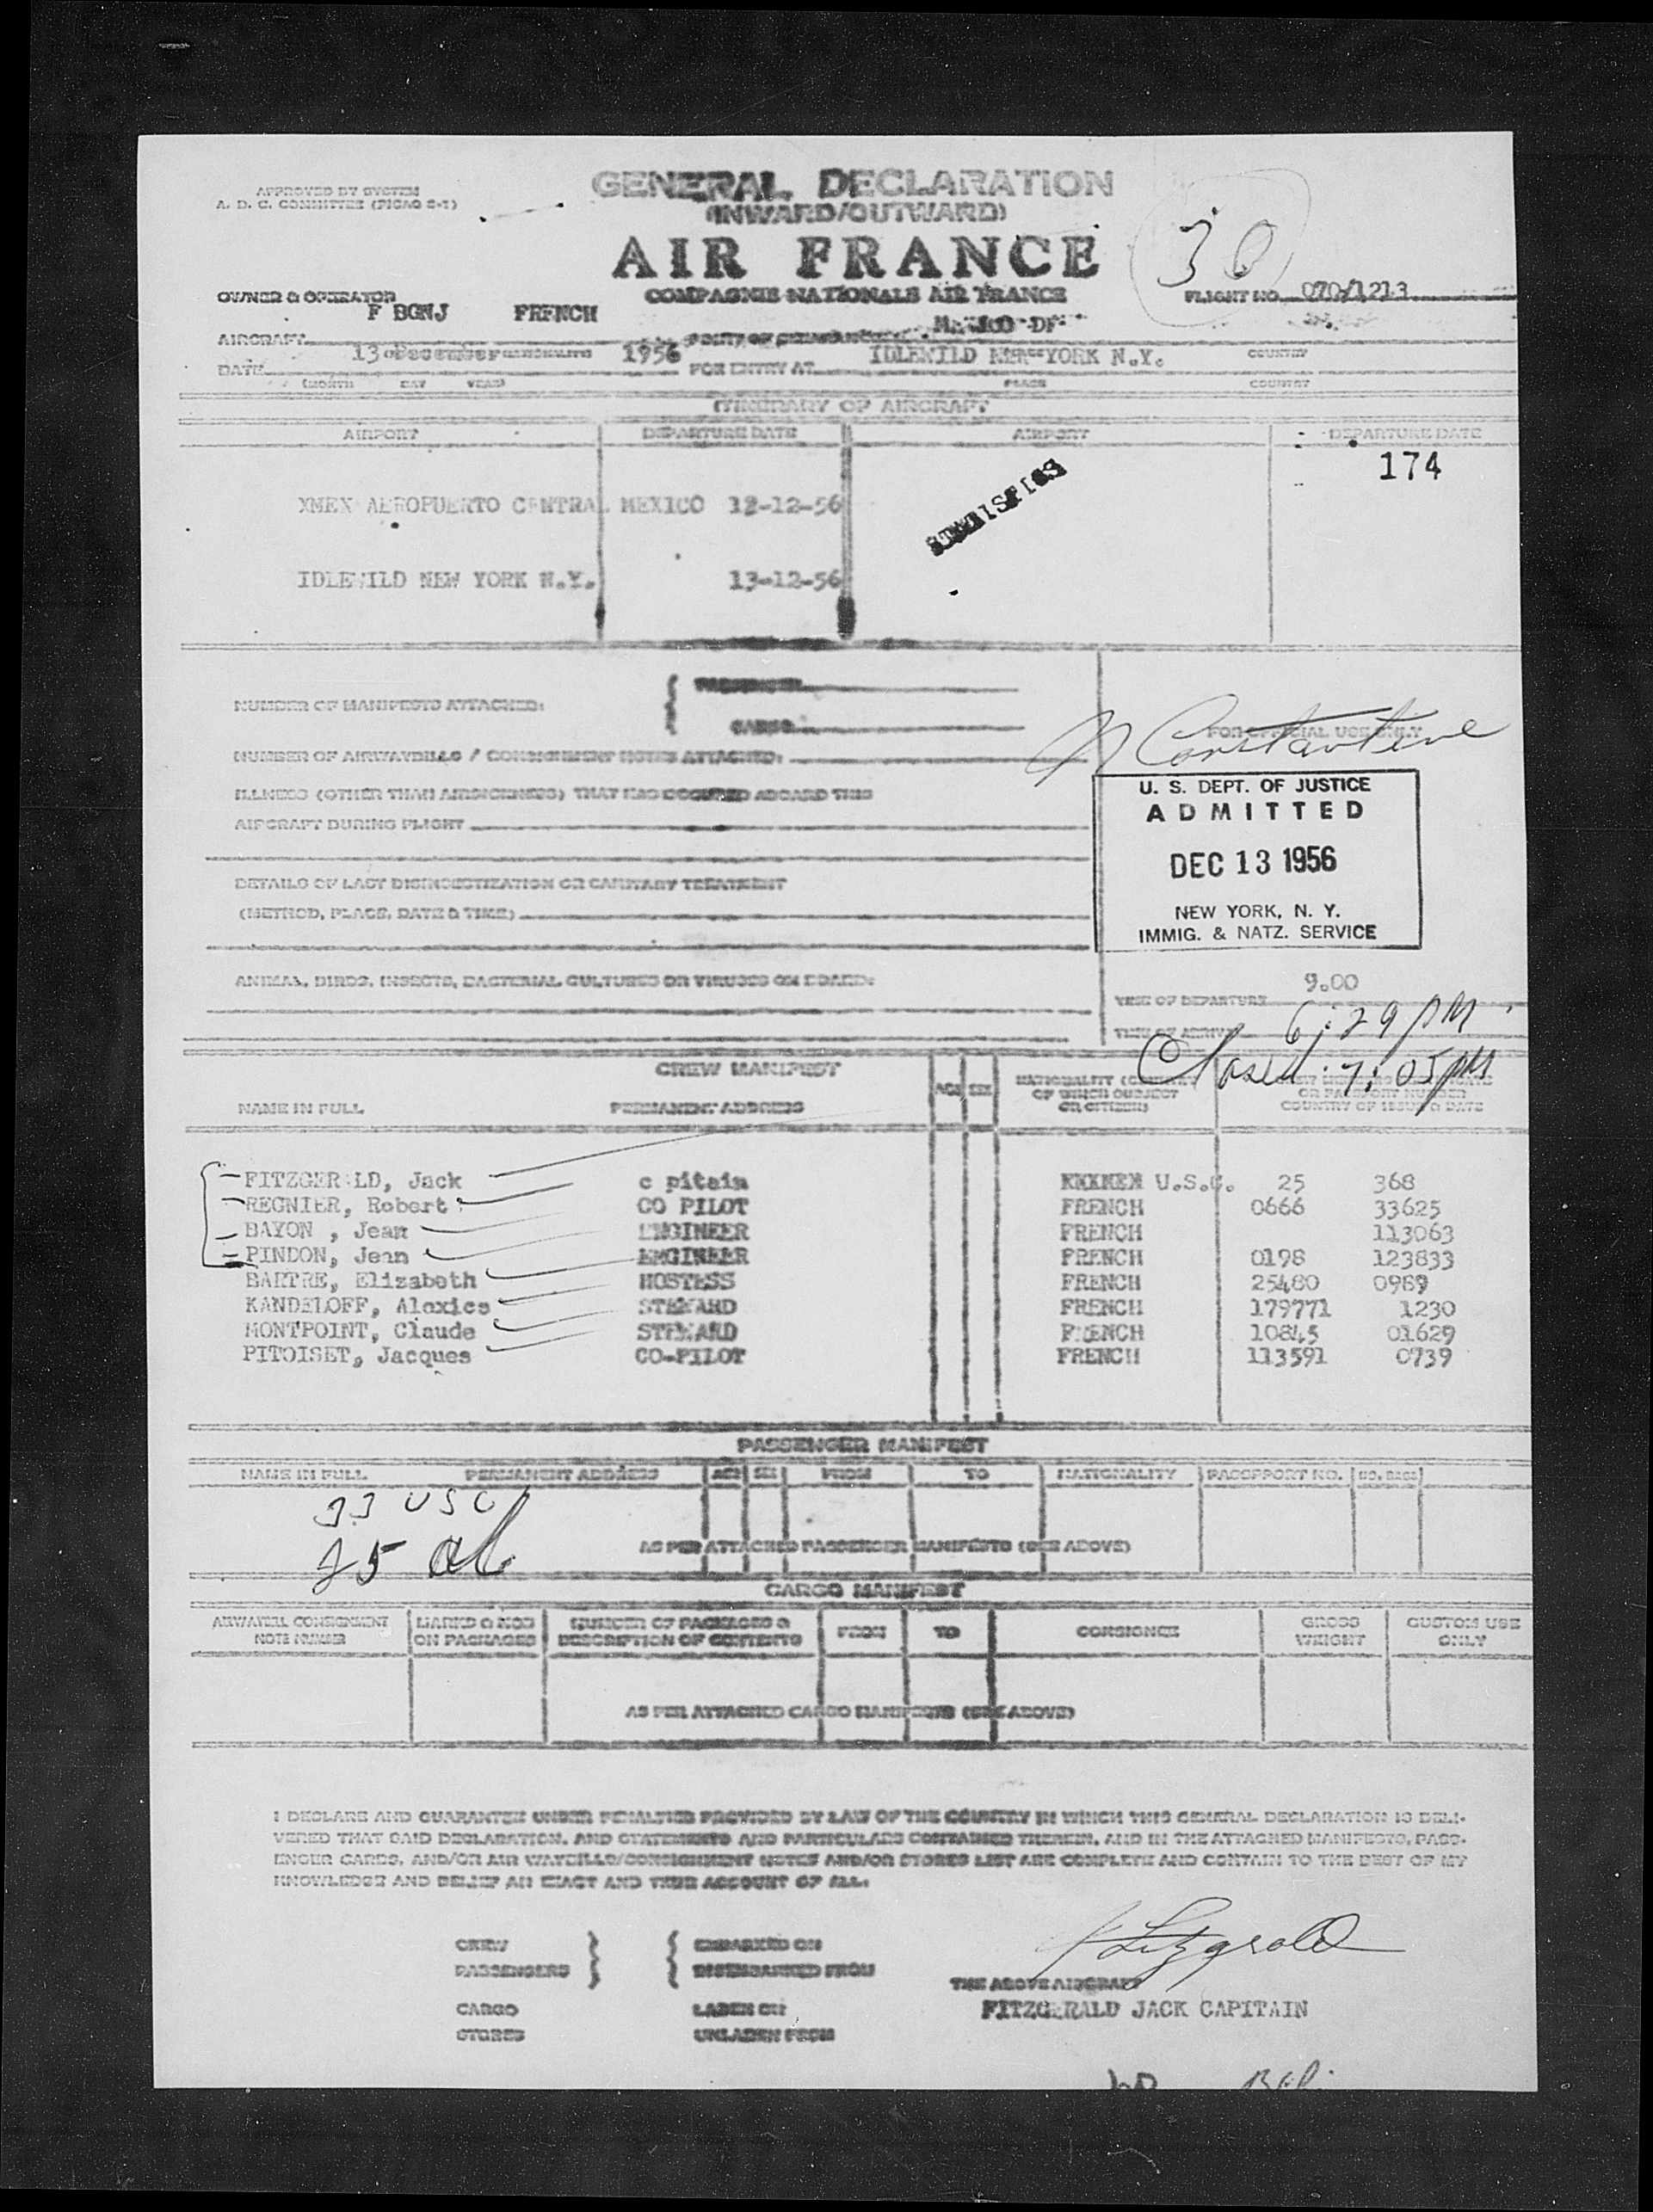 APPROVED BY SYSTEM
A. D. C. COMMITTEE (PICAO 2-1)
GENERAL DECLARATION
(INWARD/OUTWARD)
AIR FRANCE
COMPAGNIE NATIONALE AIR FRANCE
30
OWNER & OPERATOR
F BGNJ FRENCH
FLIGHT NO. 070/1213
AIRCRAFT
DF
DATE 13 December 1956
FOR ENTRY AT IDLEWILD NEW YORK N.Y.
COUNTRY
(MONTH DAY YEAR)
PLACE COUNTRY
ITINERARY OF AIRCRAFT
AIRPORT DEPARTURE DATE AIRPORT DEPARTURE DATE
174
XMEX AEROPUERTO CENTRAL MEXICO 12-12-56
IDLEWILD NEW YORK N.Y. 13-12-56
NUMBER OF MANIFESTS ATTACHED:
PASSENGER
CARGO
NUMBER OF AIRWAYBILLS / CONSIGNMENT NOTES ATTACHED:
N Constantine
FOR OFFICIAL USE ONLY
ILLNESS (OTHER THAN AIRSICKNESS) THAT HAS OCCURED ABOARD THIS
AIRCRAFT DURING FLIGHT
U. S. DEPT. OF JUSTICE
ADMITTED
DEC 13 1956
NEW YORK, N. Y.
IMMIG. & NATZ. SERVICE
DETAILS OF LAST DISINSECTIZATION OR SANITARY TREATMENT
(METHOD, PLACE, DATE & TIME)
ANIMAL, BIRDS, INSECTS, BACTERIAL CULTURES OR VIRUSES ON BOARD:
TIME OF DEPARTURE 9.00
TIME OF ARRIVAL 6:29 PM
Closed 7:05 PM
CREW MANIFEST
NAME IN FULL PERMANENT ADDRESS AGE SEX NATIONALITY (COUNTRY
OF WHICH SUBJECT
OR CITIZEN)
OR PASSPORT NUMBER
COUNTRY OF ISSUE & DATE
FITZGERALD, Jack c pitain U.S.C. 25 368
REGNIER, Robert CO PILOT FRENCH 0666 33625
BAYON , Jean ENGINEER FRENCH 113063
PINDON, Jean ENGINEER FRENCH 0198 123833
BARTRE, Elizabeth HOSTESS FRENCH 25480 0989
KANDELOFF, Alexics STEWARD FRENCH 179771 1230
MONTPOINT, Claude STEWARD FRENCH 10845 01629
PITOISET, Jacques CO-PILOT FRENCH 113591 0739
PASSENGER MANIFEST
NAME IN FULL PERMANENT ADDRESS AGE SEX FROM TO NATIONALITY PASSPPORT NO. NO. BAGS
33 USC
25 al
AS PER ATTACHED PASSENGER MANIFESTS (SEE ABOVE)
CARGO MANIFEST
AIRWAYBILL CONSIGNMENT
NOTE NUMBER
MARKS & NOS
ON PACKAGES
NUMBER OF PACKAGES &
DESCRIPTION OF CONTENTS
FROM TO CONSIGNEE
GROSS
WEIGHT
CUSTOM USE
ONLY
AS PER ATTACHED CARGO MANIFESTS (SEE ABOVE)
I DECLARE AND GUARANTEE UNDER PENALTIES PROVIDED BY LAW OF THE COUNTRY IN WHICH THIS GENERAL DECLARATION IS DELI-
VERED THAT SAID DECLARATION, AND STATEMENTS AND PARTICULARS CONTAINED THEREIN, AND IN THE ATTACHED MANIFESTS, PASS-
ENGER CARDS, AND/OR AIR WAYBILLS/CONSIGNMENT NOTES AND/OR STORES LIST ARE COMPLETE AND CONTAIN TO THE BEST OF MY
KNOWLEDGE AND BELIEF AN EXACT AND TRUE ACCOUNT OF ALL:
CREW
PASSENGERS
EMBARKED ON
DISEMBARKED FROM
J Fitzgerald
THE ABOVE AIRCRAFT
CARGO
STORES
LADEN ON
UNLADEN FROM
FITZGERALD JACK CAPITAIN